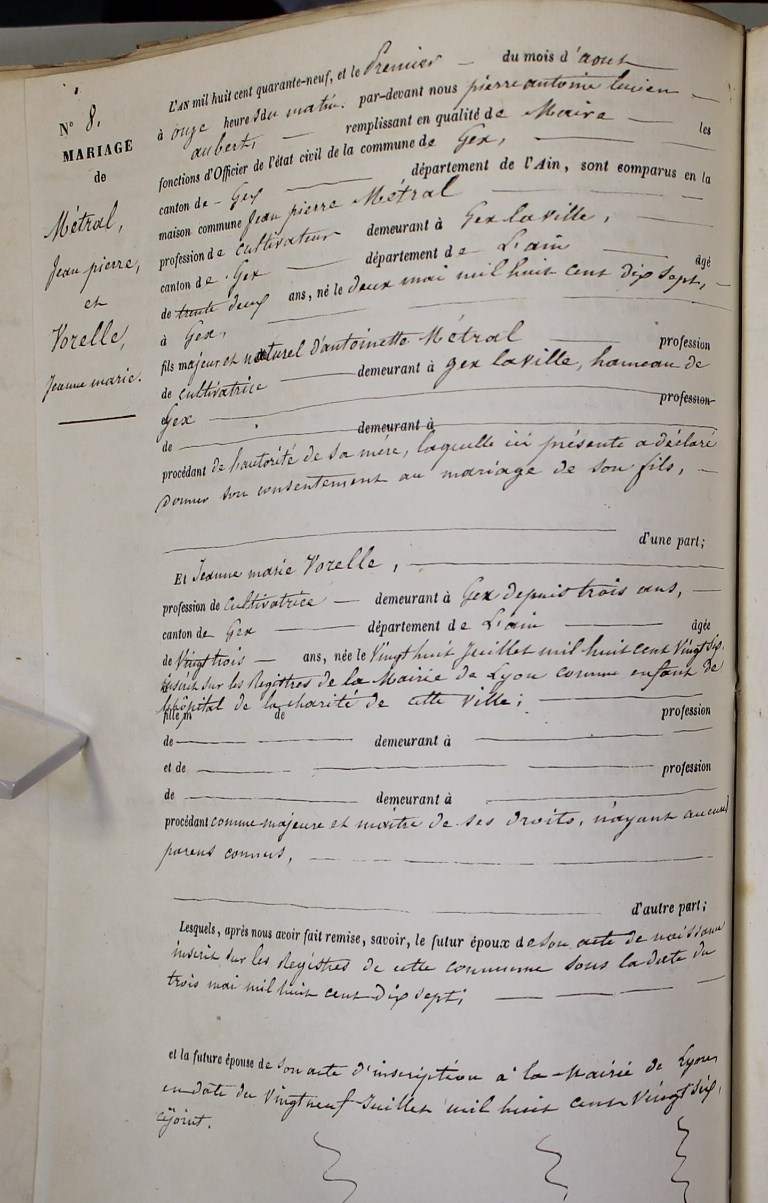 N° 8.
MARIAGE
de
Métral,
Jean pierre,
et
Vorelle,
Jeanne marie.
L'AN mil huit cent quarante-neuf, et le Premier du mois d'aout
à onze heures du matin. par-devant nous pierre antoine lucien
aubert, remplissant en qualité de Maire les
fonctions d'Officier de l'état civil de la commune de Gex,
canton de Gex département de l'Ain, sont comparus en la
maison commune Jean pierre Métral
profession de cultivateur demeurant à Gex la ville,
canton de Gex département de L'ain âgé
de trente deux ans, né le deux mai mil huit cent dix sept,
à Gex,
fils majeur et naturel d'antoinette Métral profession
de cultivatrice demeurant à gex la ville, hameau de
Gex profession
de demeurant à
procédant de l'autorité de sa mère, laquelle ici présente a déclaré
donner son consentement au mariage de son fils,
d'une part;
Et Jeanne marie Vorelle,
profession de cultivatrice demeurant à Gex depuis trois ans,
canton de Gex département de L'ain âgée
de Vingt trois ans, née le Vingt huit Juillet mil huit cent Vingt Six,
inscrit sur les Registres de la Mairie de Lyon comme enfant de
l'hôpital de la charité de cette Ville;
fille de profession
de demeurant à
et de profession
de demeurant à
procédant comme majeure et maitre de ses droits, n'ayant aucuns
parens connus,
d'autre part;
Lesquels, après nous avoir fait remise, savoir, le futur époux de son acte de naissance
inscrit sur les Registres de cette commune sous la date du
trois mai mil huit cent dix sept;
et la future épouse de Son acte d'inscription à la Mairie de Lyon
en date du Vingt neuf Juillet mil huit cent Vingt Six,
cijoint.